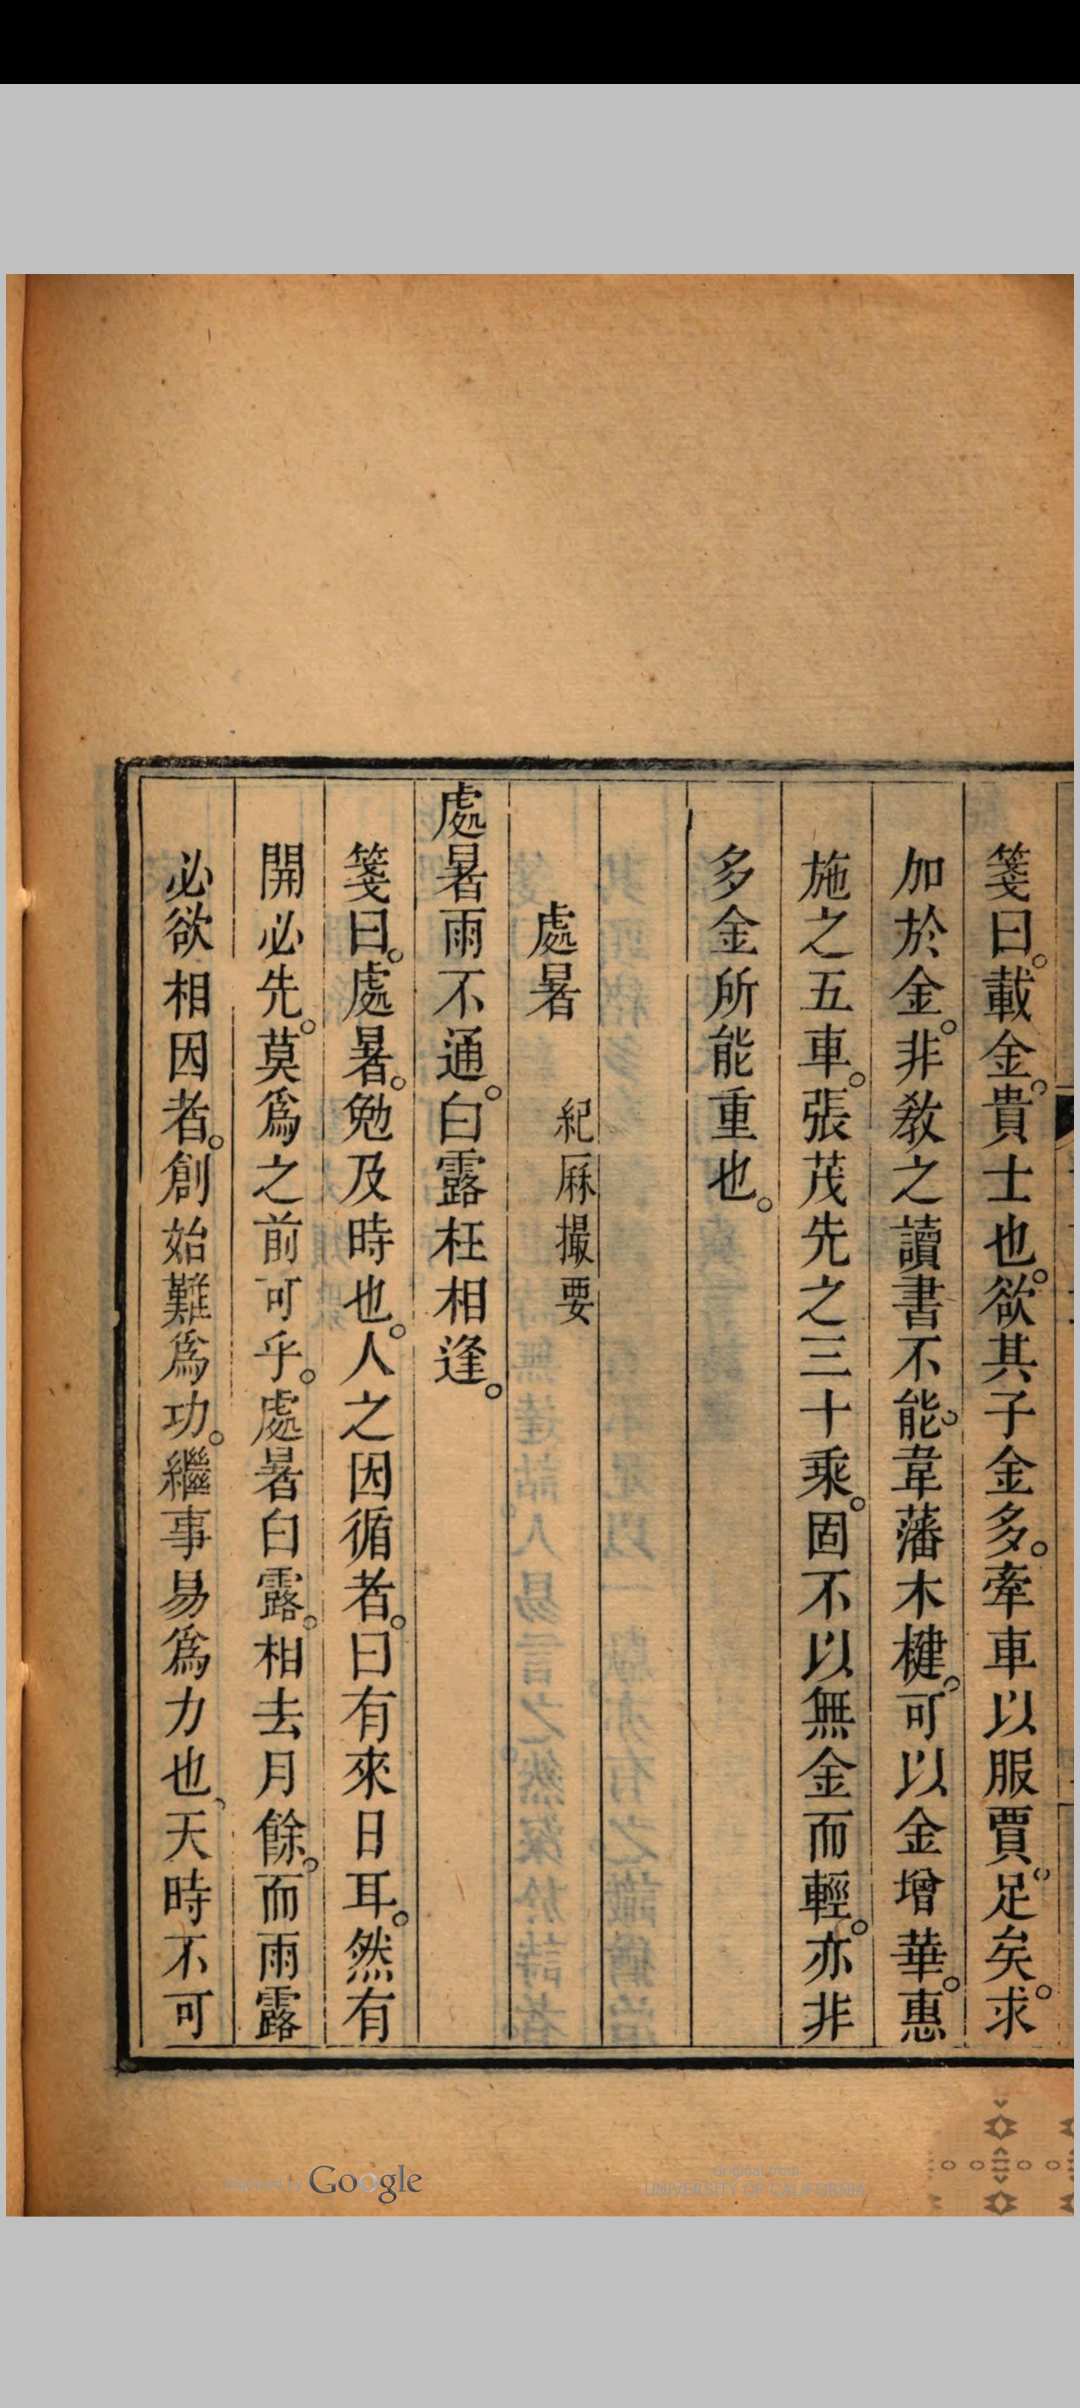 箋曰。載金。貴士也。欲其子金多。牽車以服賈。足矣。求
加於金。非敎之讀書不能。韋籓木楗。可以金增華。惠
施之五車。張茂先之三十乘。固不以無金而輕。亦非
多金所能重也。
處暑 紀厤撮要
處暑雨不通。白露枉相逢。
箋曰。處暑。勉及時也。人之因循者。曰有來日耳。然有
開必先。莫爲之前可乎。處暑白露。相去月餘。而雨露
必欲相因者。創始難爲功。繼事易爲力也。天時不可
Google
Original from
UNIVERSITY OF CALIFORNIA